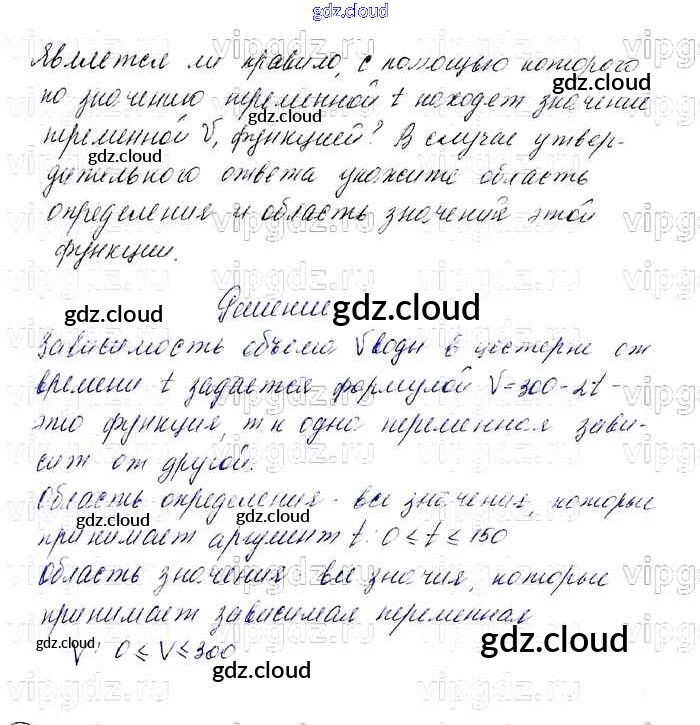 gdz.cloud
Является ли правило, с помощью которого
по значению переменной t находят значение
переменной V, функцией? В случае утвер-
дительного ответа укажите область
определения и область значения этой
функции.
Решение
Зависимость объема V воды в цистерне от
времени t задается формулой V=300-2t -
это функция, т к одна переменная зави-
сит от другой.
Область определения - все значения, которые
принимает аргумент t: 0 ≤ t ≤ 150
Область значения - все значия, которые
принимает зависимая переменная
V: 0 ≤ V ≤ 300